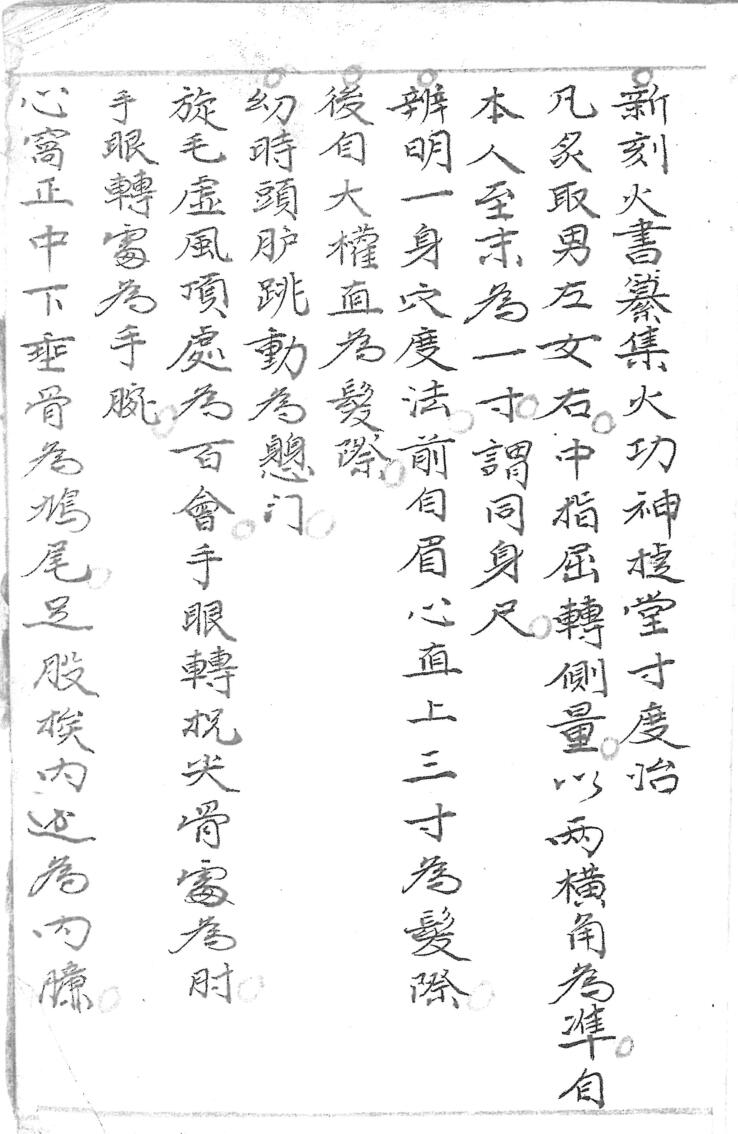 新刻火書纂集火功神捷堂寸度治
凡炙取男左女右中指屈轉側量以两横角為準自
本人至末為一寸謂同身尺
辨明一身穴度法前自眉心直上三寸為髮際
後自大權直為髮際
幼時頭胪跳動為懸门
旋毛虛風頂處為百會手眼轉拐尖骨處為肘
手眼轉處為手腕
心窩正中下垂骨為鳩尾足股挨内边為内臁